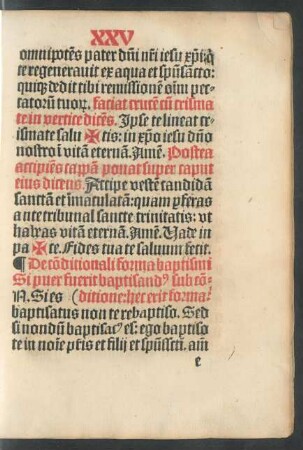 XXV
omnipotẽs pater dñi nr̃i iesu xp̃i: q̃
te regenerauit ex aqua et sp̃u sãcto:
quiq; dedit tibi remissionẽ oĩm pec-
catorũ tuoꝝ. faciat crucẽ cũ crisma
te in vertice dicẽs. Ipse te lineat cr
ismate salu ✠ tis: in xp̃o iesu dño
nostro ĩ vitã eternã. Amẽ. Postea
accipiẽs cap̃ã ponat super caput
eius dicens. Accipe vestẽ candidã
sanctã et ĩmaculatã: quam p̱feras
ante tribunal sancte trinitatis: vt
habeas vitã eternã. Amẽ. Vade in
pa ✠ ce. Fides tua te saluum fecit.
¶ De cõditionali forma baptismi
Si puer fuerit baptisandꝰ sub cõ-
N. Si es (ditione: hec erit forma.
baptisatus non te rebaptiso. Sed
si nondũ baptisatꝰ es: ego baptiso
te in noĩe pr̃is et filij et sp̃ussctĩ. am̃
e